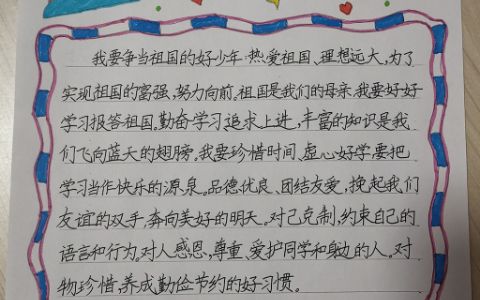 我要争当祖国的好少年·热爱祖国、理想远大,为了
实现祖国的富强,努力向前。祖国是我们的母亲,我要好好
学习报答祖国,勤奋学习追求上进,丰富的知识是我
们飞向蓝天的翅膀,我要珍惜时间,虚心好学要把
学习当作快乐的源泉。品德优良、团结友爱,挽起我们
友谊的双手,奔向美好的明天。对己克制,约束自己的
语言和行为。对人感恩,尊重、爱护同学和身边的人。对
物珍惜,养成勤俭节约的好习惯。